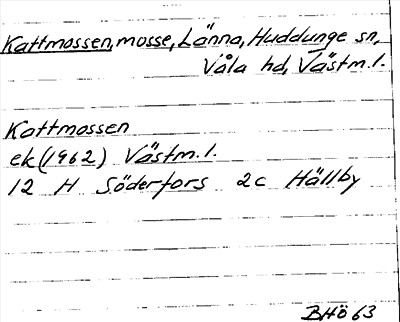 Kattmossen, mosse, Länna, Huddunge sn,
Våla hd, Västm.l.
Kattmossen
ek(1962) Västm.l.
12 H Söderfors 2c Hällby
BHö 63